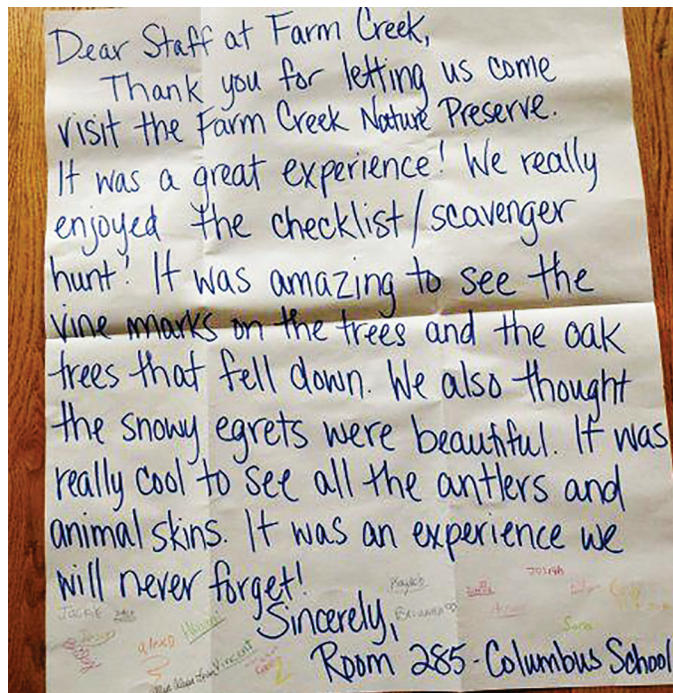 Dear Staff at Farm Creek,
Thank you for letting us come
visit the Farm Creek Nature Preserve.
It was a great experience! We really
enjoyed the checklist/scavenger
hunt! It was amazing to see the
vine marks on the trees and the oak
trees that fell down. We also thought
the snowy egrets were beautiful. It was
really cool to see all the antlers and
animal skins. It was an experience we
will never forget!
Sincerely,
Room 285-Columbus School
Josiah
Vincent
Sara